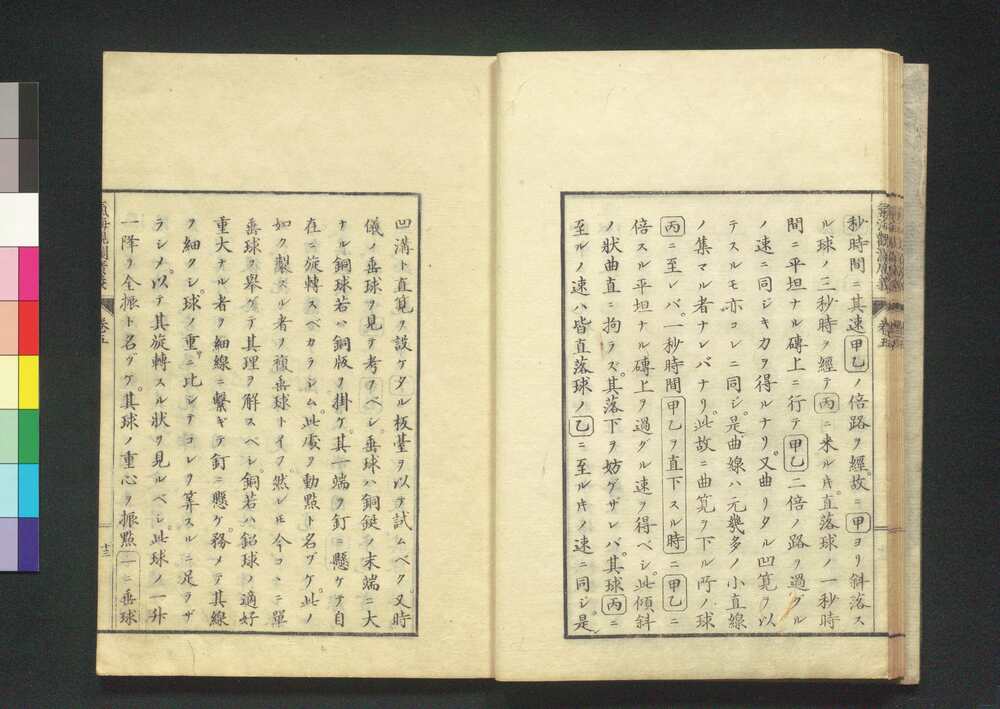 秒時間ニ其速甲乙ノ倍路ヲ經。故ニ甲ヨリ斜落ス
ル球ノ三秒時ヲ經テ丙ニ来ルヰ。直落球ノ一秒時
間ニ平坦ナル磚上ニ行テ甲乙二倍ノ路ヲ過グル
ノ速ニ同ジキカヲ得ルナリ。又曲リタル凹筧ヲ以
テスルモ亦コレニ同ジ。是曲線ハ元幾多ノ小直線
ノ集マル者ナレバナリ。此故ニ曲筧ヲ下ル所ノ球
丙ニ至レバ。一秒時間甲乙ヲ直下スル時ニ甲乙ニ
倍スル平坦ナル磚上ヲ過グル速ヲ得ベシ。此傾斜
ノ狀曲直ニ拘ラズ。其落下ヲ妨ゲザレバ。其球丙ニ
至ルノ速ハ皆直落球ノ乙ニ至ルヰノ速ニ同シ。是
氣海觀瀾廣義
卷五
凹溝ト直筧ヲ設ケタル板臺ヲ以テ試ムベク。又時
儀ノ垂球ヲ見テ考フベシ。垂球ハ銅鋌ノ末端ニ大
ナル銅球若ハ銅版ヲ掛ケ。其一端ヲ釘ニ懸ケテ自
在ニ旋轉スベカラシム。此處ヲ動點ト名ヅケ。此ノ
如ク製スル者ヲ複垂球トイフ。然レ𪜈今コヽニ單
垂球ヲ舉ゲテ其理ヲ解スベシ。銅若ハ鉛球ノ適好
重大ナル者ヲ細線ニ繋ギテ釘ニ懸ケ。務メテ其線
ヲ細クシ。球ノ重ニ比シテコレヲ算スルニ足ラザ
ラシメ。以テ其旋轉スル狀ヲ見ルベシ。此球ノ一升
一降ヲ全振ト名ヅケ。其球ノ重心ヲ振點一ニ垂球
卷五
十三